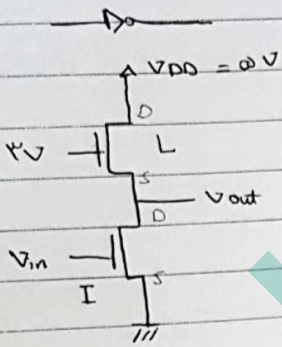 VDD = ۵ V
D
۳V
L
S
Vout
D
Vin
I
S